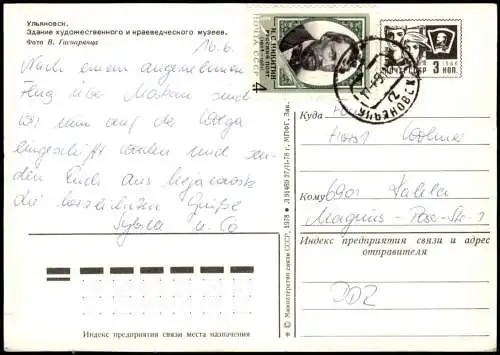 Ульяновск.
Здание художественного и краеведческого музеев.
Фото В.
16.6.
Nach einem angenehmen
Flug über sind
wir nun auf der Wolga
eingeschifft worden und sen-
den Euch aus
die herzlichsten Grüße
u. Co
ПОЧТА СССР
И.С. НИКИТИН
Русский поэт
4
ПОЧТА СССР
3 КОП.
1966
УЛЬЯНОВСК
Куда
Horst
Кому 6901
Magnus - Poser - Str. 1
Индекс предприятия связи и адрес
отправителя
DDR
Индекс предприятия связи места назначения
© Министерство связи СССР, 1978 • Л 91469 27/11-78 г., МПФГ, Зак.